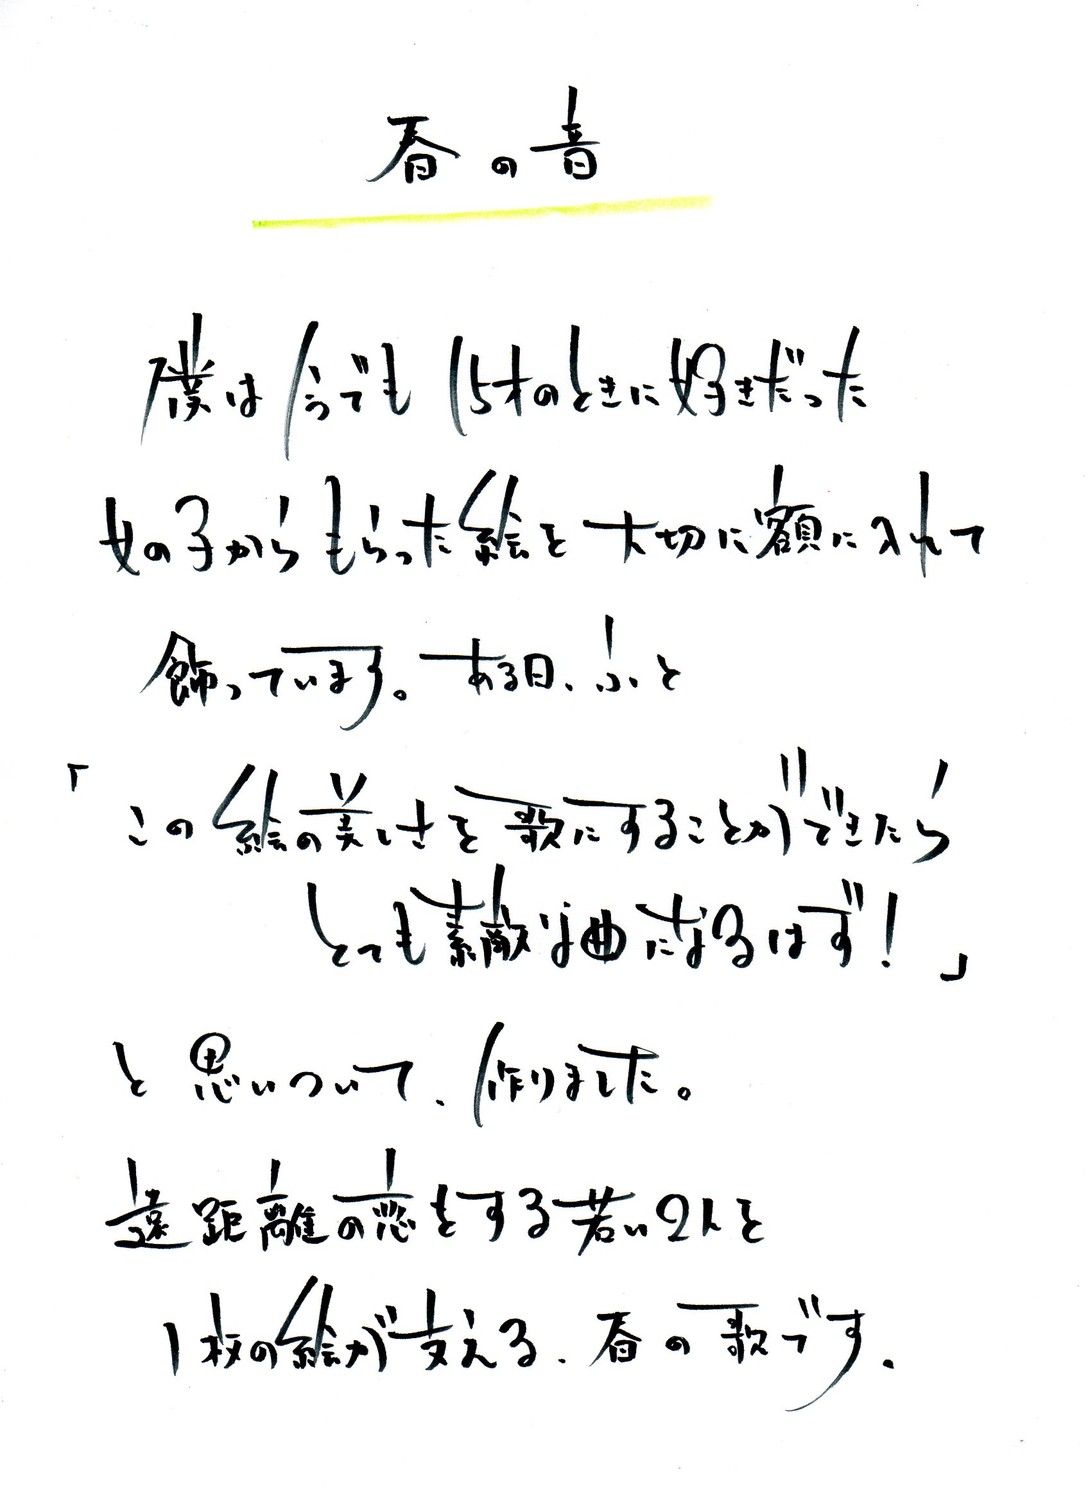 春の音
僕は今でも15才のときに好きだった
女の子からもらった絵を大切に額に入れて
飾っています。ある日、ふと
「この絵の美しさを歌にすることができたら
とても素敵な曲になるはず！」
と思いついて、作りました。
遠距離の恋をする若い2人を
1枚の絵が支える、春の歌です.